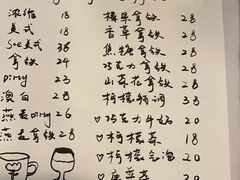 浓缩 18
美式 18
Soe美式 38
拿铁 24
Dirty 23
澳白 28
燕麦Dirty 26
燕麦拿铁 28
榛果拿铁 28
香草拿铁 28
焦糖拿铁 28
巧克力拿铁 28
山茶花拿铁 28
柠檬特调 38
♡巧克力牛奶 20
♡柠檬茶 18
♡柠檬气泡 20